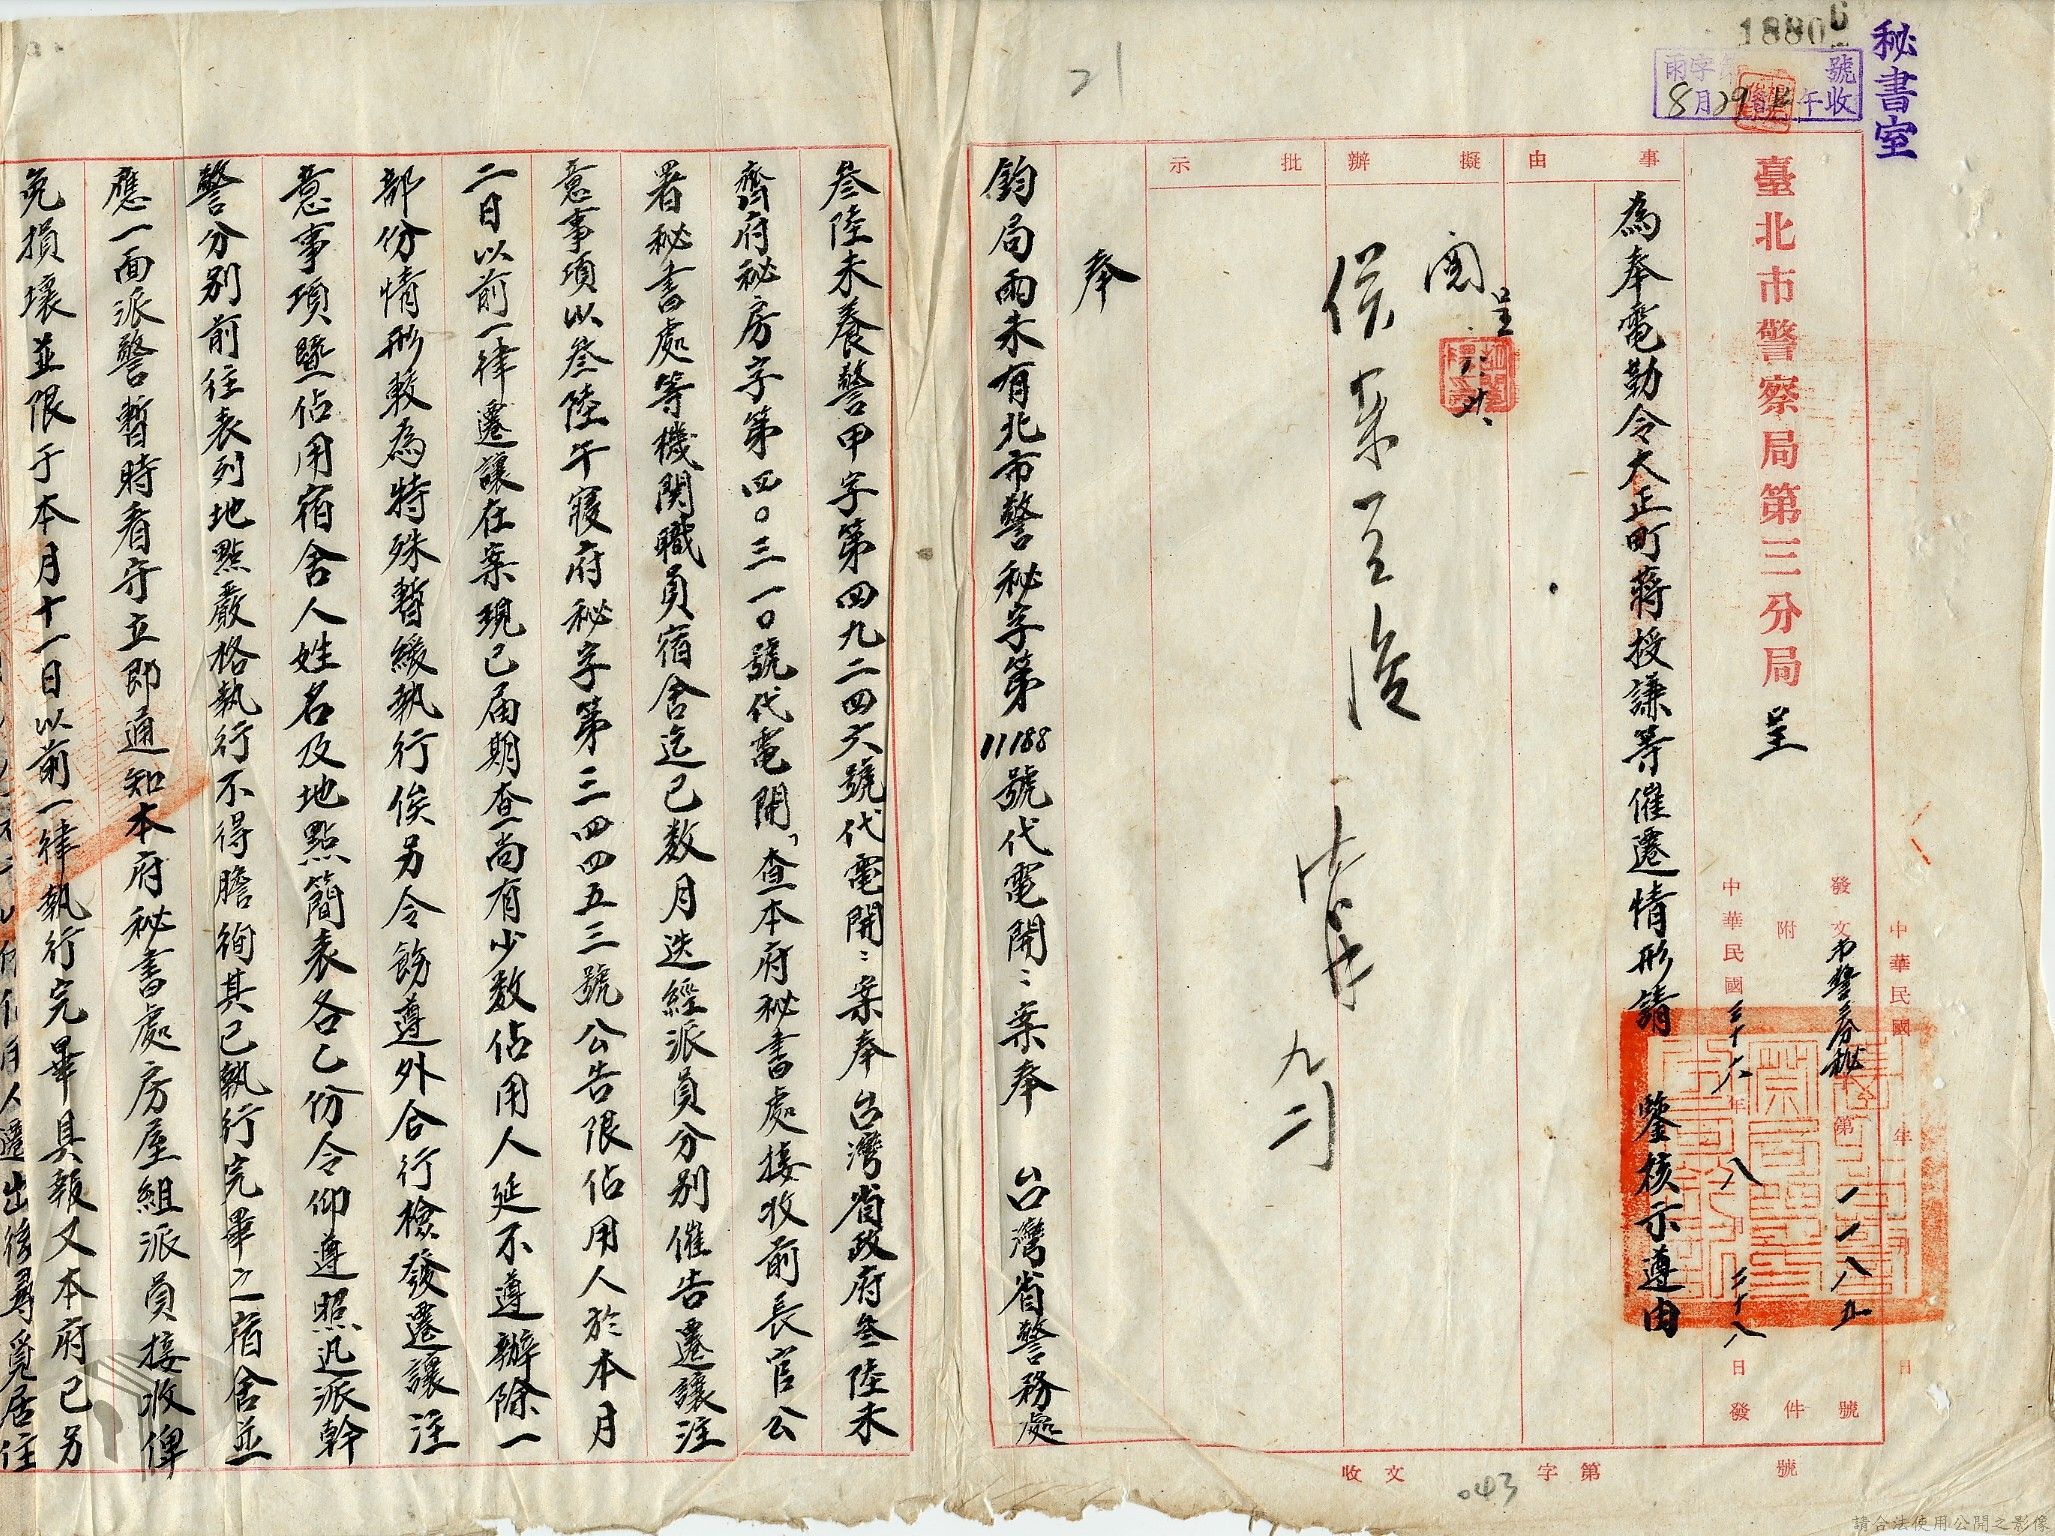 秘書室
18806
雨字第 號
8月29日 午收
21
臺北市警察局第三分局 呈
中華民國 年 月 日
發文 市警三分秘 第 一一八五 號
附 件
中華民國三十六年八月三十八日發
事由
擬辦
批示
為奉電勒令大正町蔣授謙等催遷情形請 鑒核示遵由
閱呈
九二
奉
鈞局雨未有北市警秘字第11188號代電開:案奉 台灣省警務處
叁陸未養警甲字第四九二四六號代電開:案奉台灣省政府叁陸未
齊府秘房字第四〇三一〇號代電開「查本府秘書處接收前長官公
署秘書處等機関職員宿舍迄已数月迭經派員分別催告遷讓注
意事項以叁陸午寢府秘字第三四四五三號公告限佔用人於本月
二日以前一律遷讓在案現已屆期查尚有少数佔用人延不遵辦除一
部份情形較為特殊暫緩執行俟另令飭遵外合行檢發遷讓注
意事項曁佔用宿舍人姓名及地點簡表各乙份令仰遵照迅派幹
警分別前往表列地點嚴格執行不得瞻徇其已執行完畢之宿舍並
應一面派警暫時看守立即通知本府秘書處房屋組派員接收俾
免損壞並限于本月十一日以前一律執行完畢具報又本府已另
人遷出後尋覓居住
收文 字第 號
043
請合法使用公開之影像